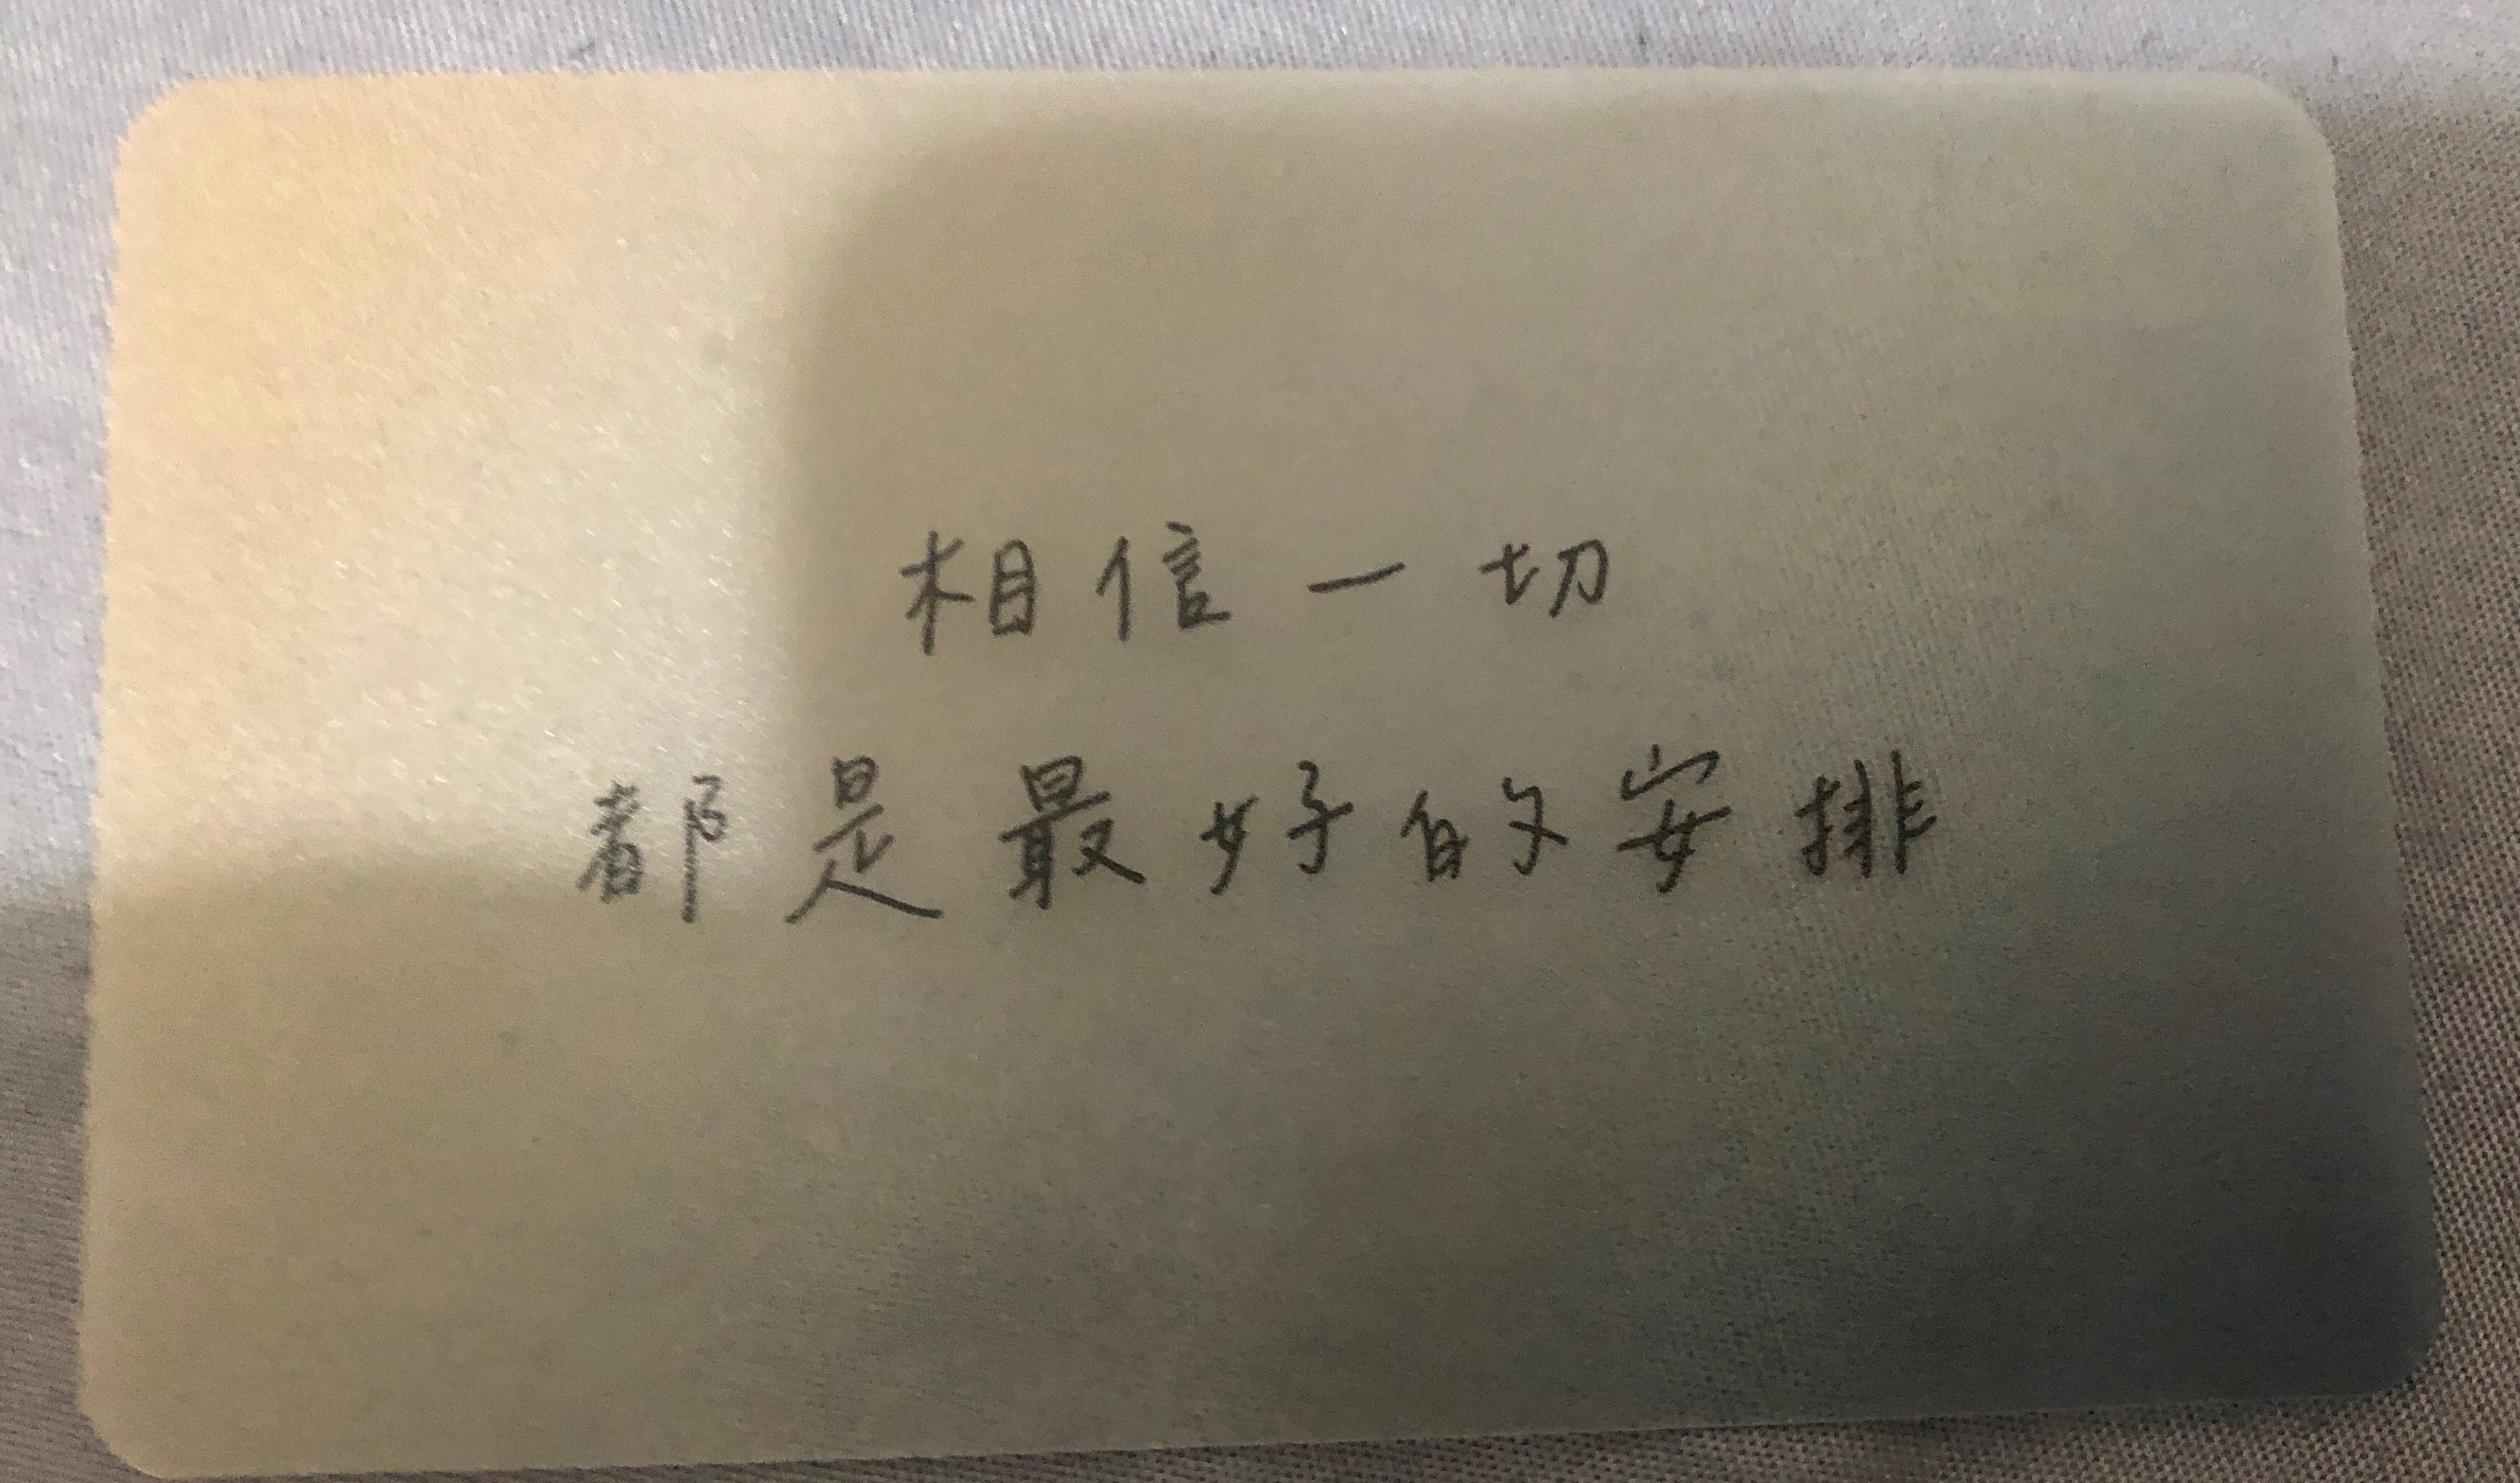 相信一切
都是最好的安排